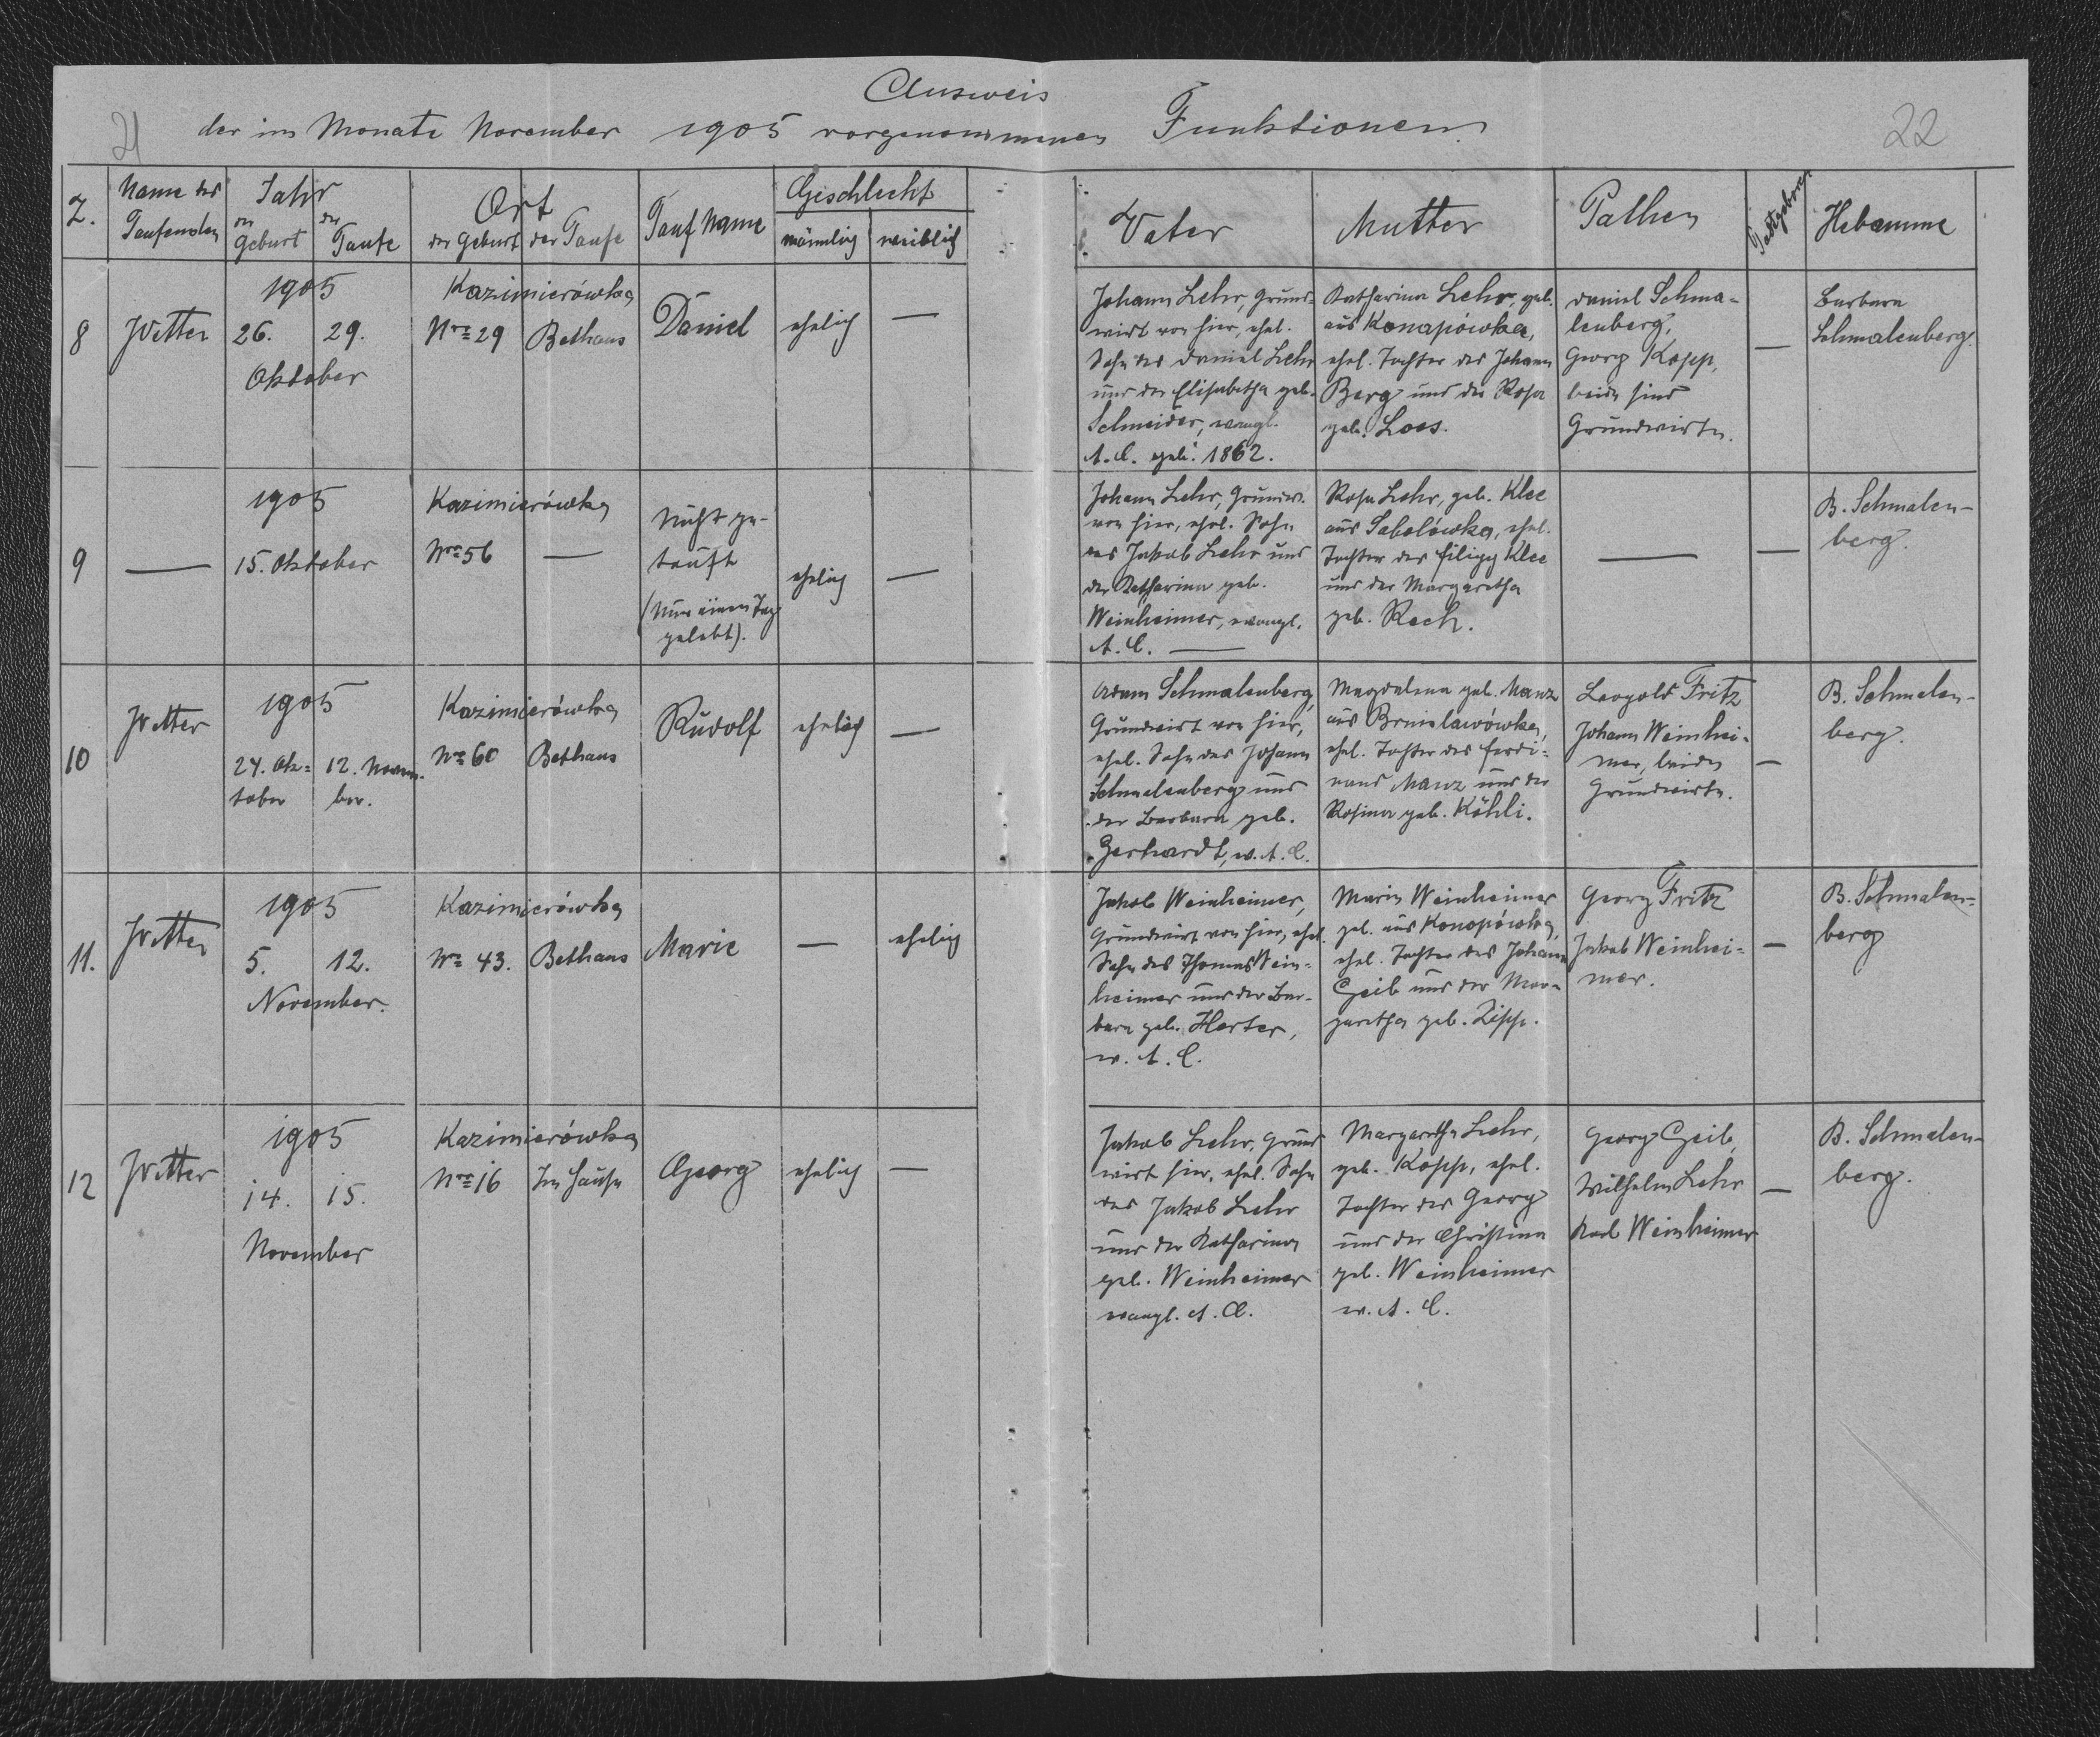 Ausweis
der im Monate November 1905 vorgenommenen Funktionen.
21
22
Z.
Name des
Taufenden
Jahr
der Geburt
der Taufe
Ort
der Geburt
der Taufe
Tauf Name
Geschlecht
männlich
weiblich
Vater
Mutter
Pathen
Totgeboren
Hebamme
8
Vetter
1905
26. 29.
Oktober
Kazimierówka
Nro 29
Bethaus
Daniel
ehelich
—
Johann Lehr, Grund-
wirt von hier, ehel.
Sohn des Daniel Lehr
und der Elisabetha geb.
Schneider, evangl.
A. C. geb. 1862.
Katharina Lehr, geb.
aus Konopówka,
ehel. Tochter des Johann
Berg und der Rosa
geb. Loos.
Daniel Schma-
lenberg,
Georg Kopp,
beide sind
Grundwirte.
—
Barbara
Schmalenberg.
9
—
1905
15. Oktober
Kazimierówka
Nro 56
—
Nicht ge-
tauft
(Nur einen Tag
gelebt).
ehelich
—
Johann Lehr, Grundw.
von hier, ehel. Sohn
des Jakob Lehr und
der Katharina geb.
Weinheimer, evangl.
A. C. —
Rosa Lehr, geb. Klee
aus Sabolówka, ehel.
Tochter des Filipp Klee
und der Margaretha
geb. Rech.
—
—
B. Schmalen-
berg
10
Vetter
1905
24. Ok-
tober
12. Novem-
ber.
Kazimierówka
Nro 60
Bethaus
Rudolf
ehelich
—
Adam Schmalenberg,
Grundwirt von hier,
ehel. Sohn des Johann
Schmalenberg und
der Barbara geb.
Gerhardt, ev. A. C.
Magdalena geb. Manz
aus Brnislawówka,
ehel. Tochter des Ferdi-
nand Manz und der
Rosina geb. Köhli.
Leopold Fritz
Johann Weinhei-
mer, beide
Grundwirte.
—
B. Schmalen-
berg.
11.
Vetter
1905
5. 12.
November.
Kazimierówka
Nro 43.
Bethaus
Marie
—
ehelich
Jakob Weinheimer,
Grundwirt von hier, ehel.
Sohn des Thomas Wein-
heimer und der Bar-
bara geb. Harter,
ev. A. C.
Maria Weinheimer
geb. aus Konopówka,
ehel. Tochter des Johann
Geib und der Mar-
garetha geb. Zipp.
Georg Fritz
Jakob Weinhei-
mer.
—
B. Schmalen-
berg
12
Vetter
1905
14. 15.
November
Kazimierówka
Nro 16
Im Hause
Georg
ehelich
—
Jakob Lehr, Grund
wirt hier, ehel. Sohn
des Jakob Lehr
und der Katharina
geb. Weinheimer
evangl. A. C.
Margaretha Lehr,
geb. Kopp, ehel.
Tochter des Georg
und der Christina
geb. Weinheimer
ev. A. C.
Georg Geib,
Wilhelm Lehr
Karl Weinheimer
—
B. Schmalen-
berg.